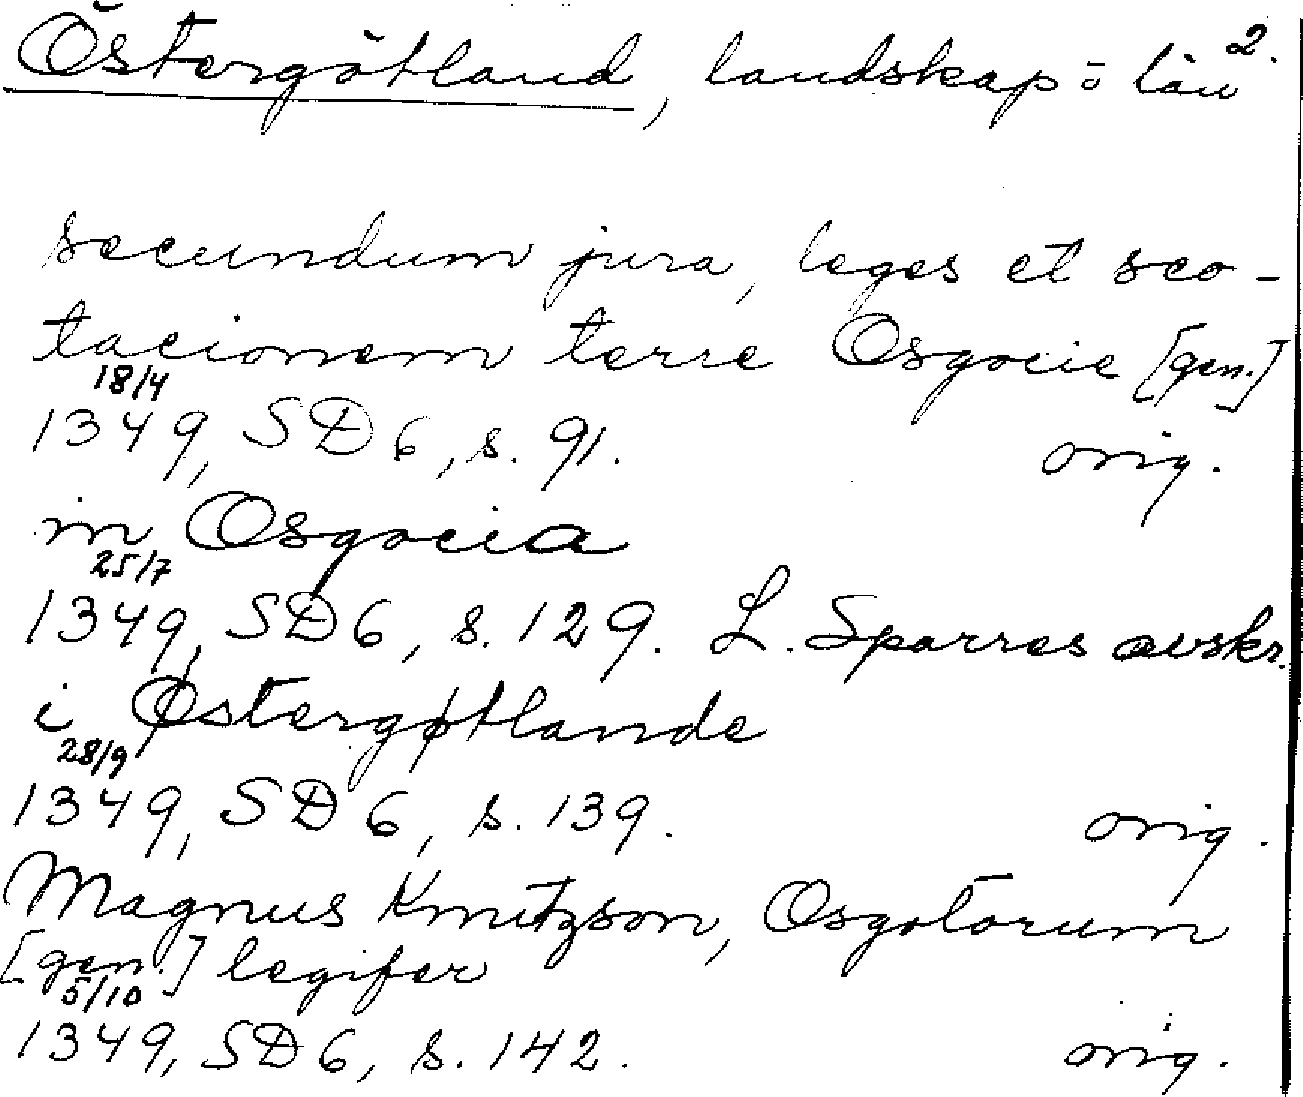 Östergötland, landskap o län 2.
secundum jura, leges et sco-
tacionem terre Osgocie [gen.]
18/4
1349, SD 6, s. 91. orig.
in Osgocia
25/7
1349, SD 6, s. 129. L. Sparres avskr.
i Østergøtlande
28/9
1349, SD 6, s. 139. orig.
Magnus Knutzson, Osgotorum
[gen.] legifer
5/10
1349, SD 6, s. 142. orig.